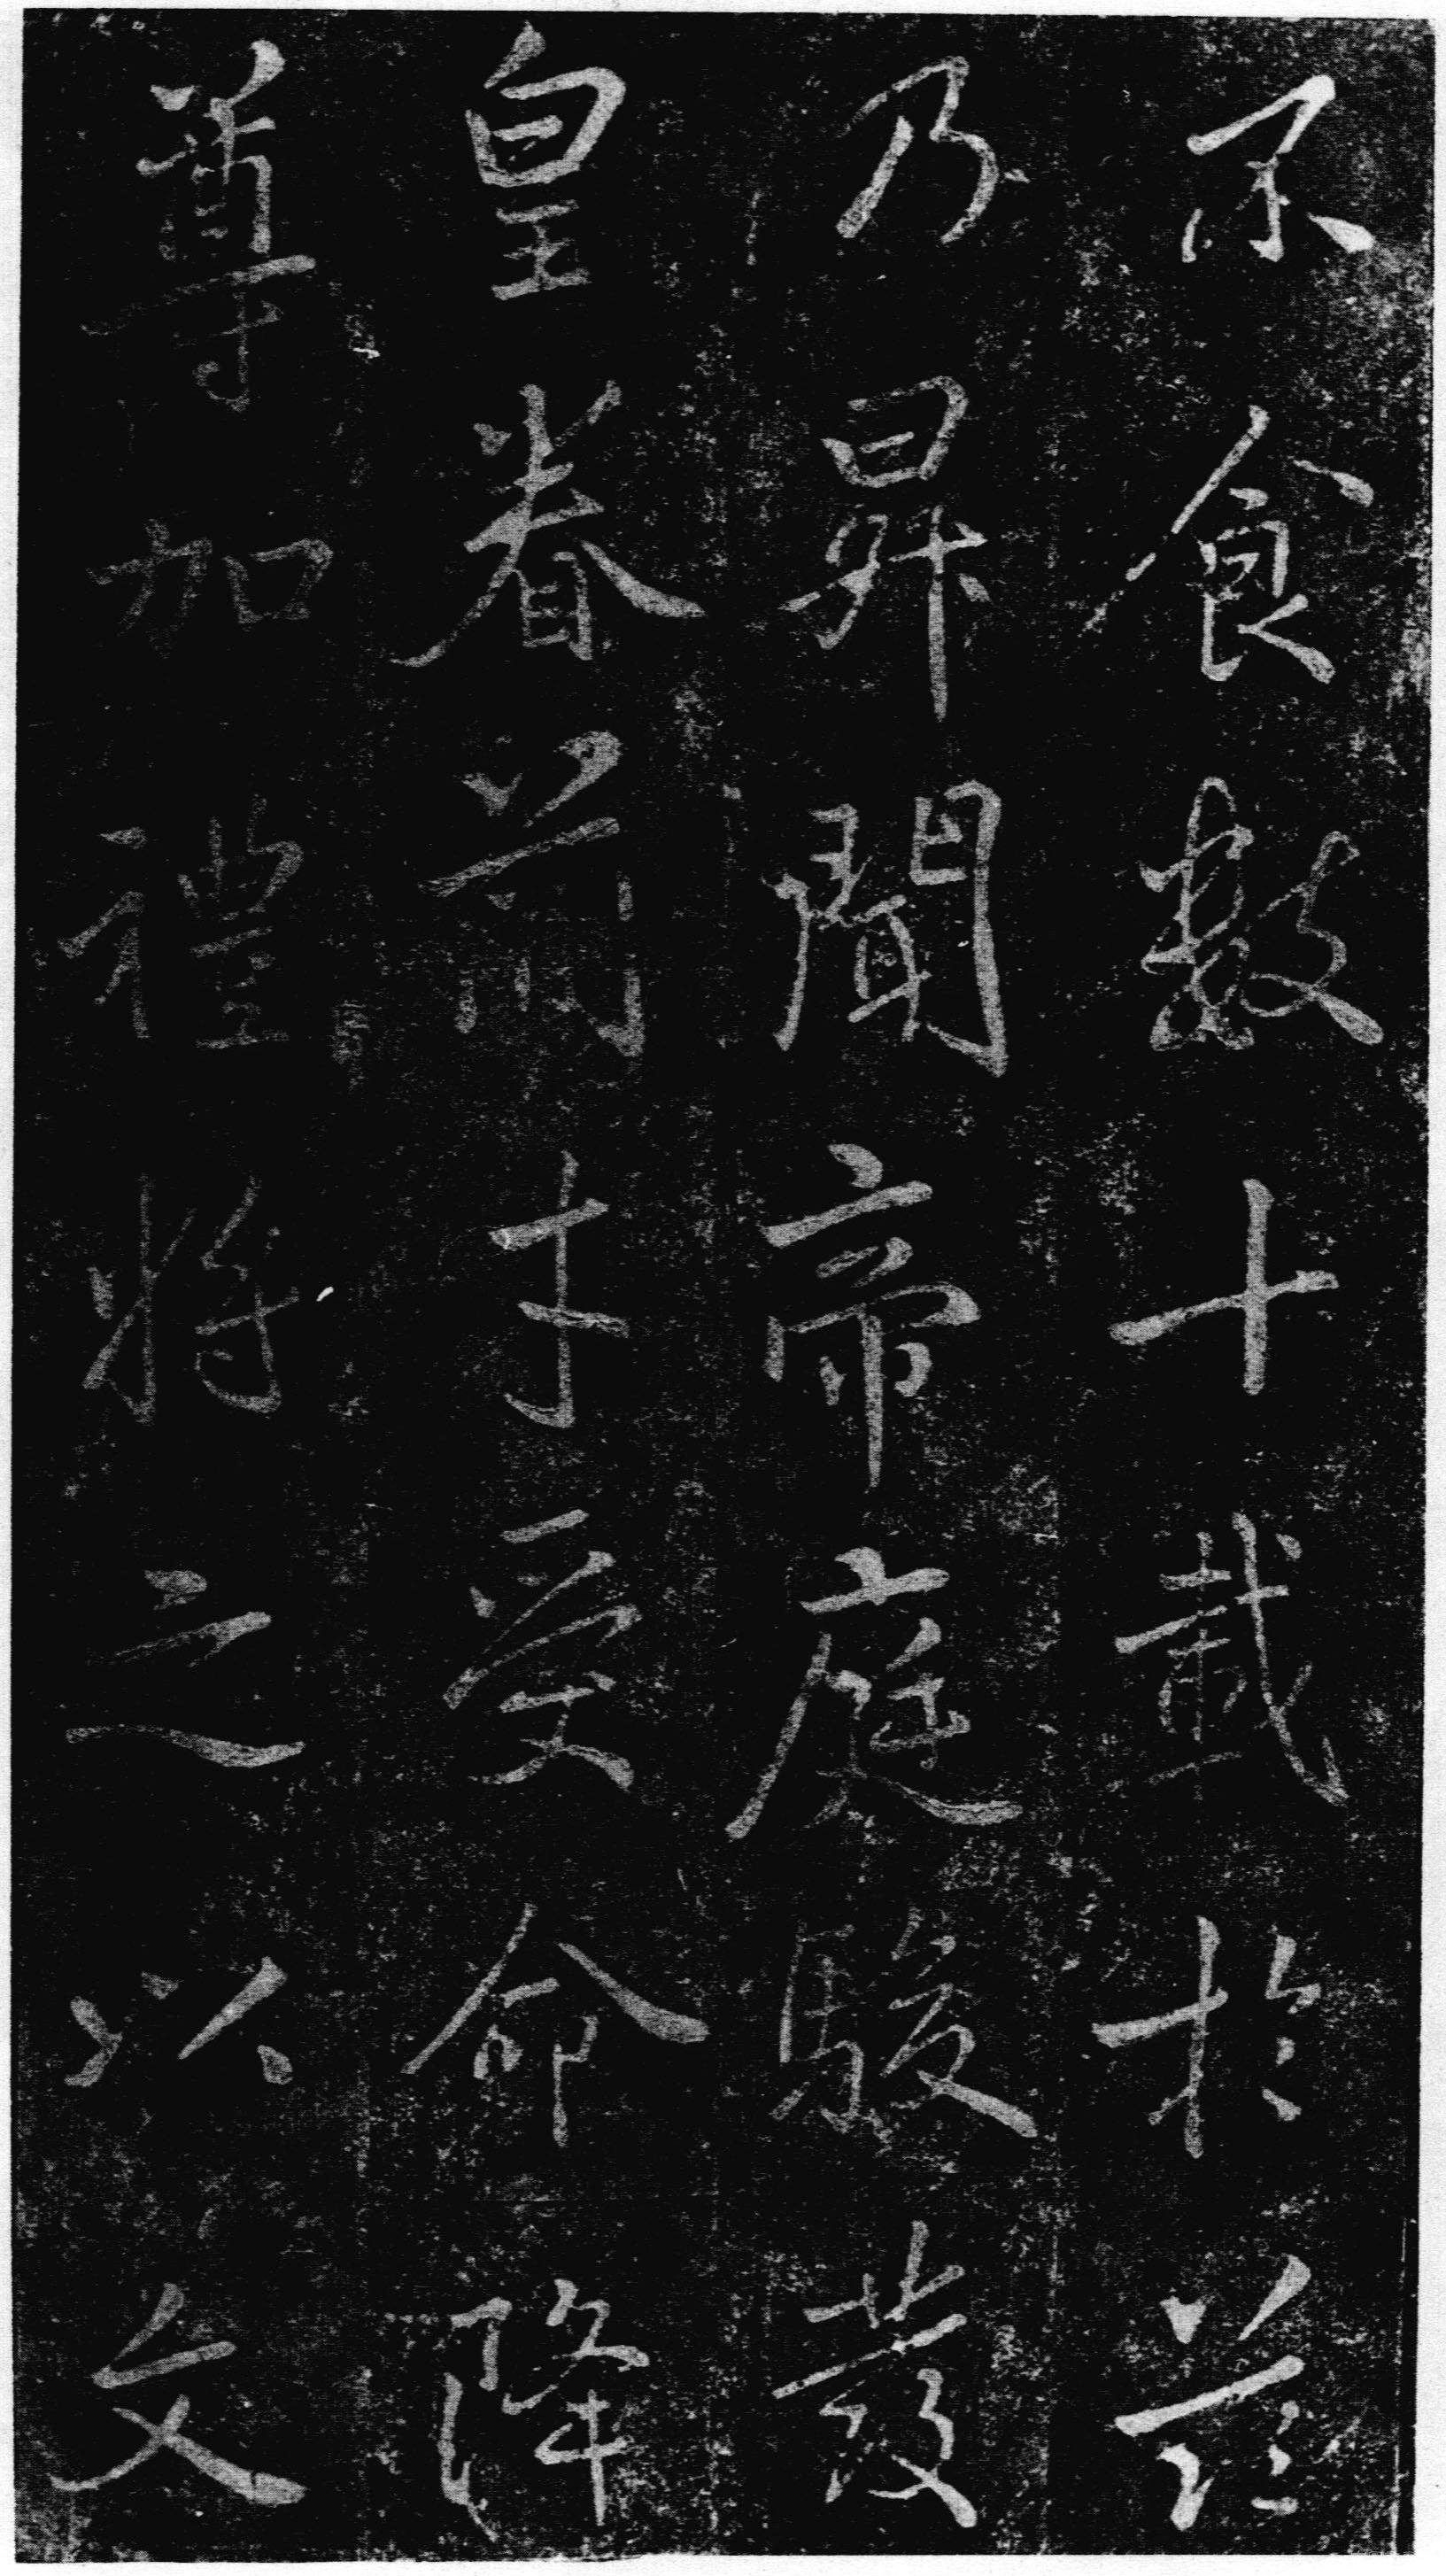 不食數十載於茲
乃昇聞帝庭駿發
皇眷前受命降
尊加禮將之以文